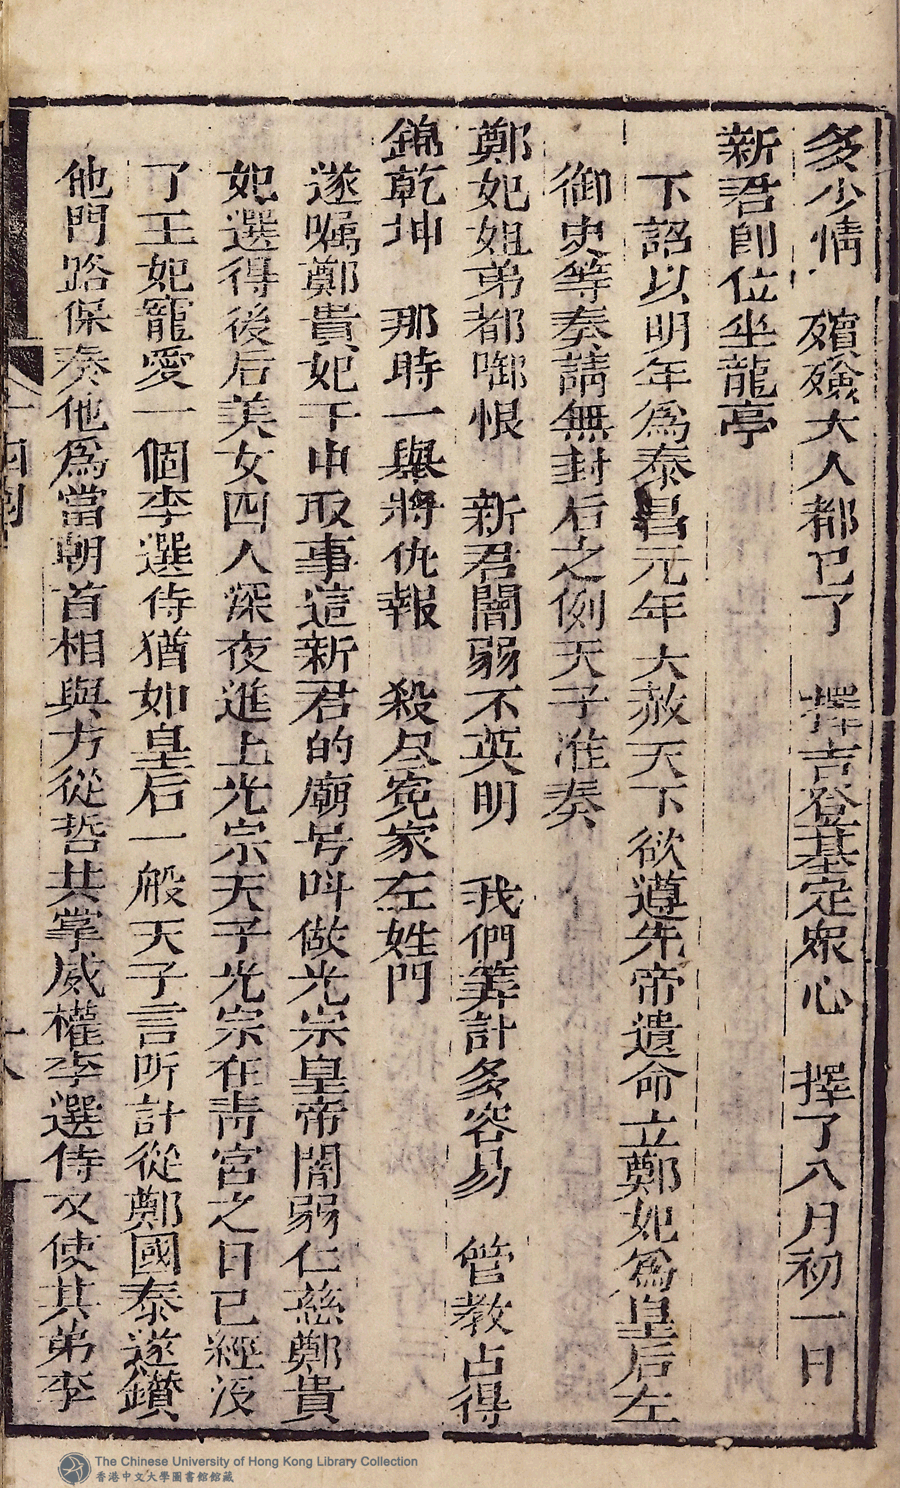 多少情　殯殮大人都已了　擇吉登基定衆心　擇了八月初一日
新君即位坐龍亭
下詔以明年為泰昌元年大赦天下欲遵先帝遺命立鄭妃為皇后左
御史等奏請無封后之例天子准奏
鄭妃姐弟都啣恨　新君闇弱不英明　我們筭計多容易　管教占得
錦乾坤　那時一舉將仇報　殺尽寃家左姓門
遂嘱鄭貴妃于中取事這新君的廟号呌做光宗皇帝闇弱仁慈鄭貴
妃選得後后美女四人深夜進上光宗天子光宗在青宮之日已經沒
了王妃寵愛一個李選侍猶如皇后一般天子言听計從鄭國泰遂鑽
他門路保奏他為當朝首相與方從哲共掌威權李選侍又使其弟李
十八
The Chinese University of Hong Kong Library Collection
香港中文大學圖書館館藏